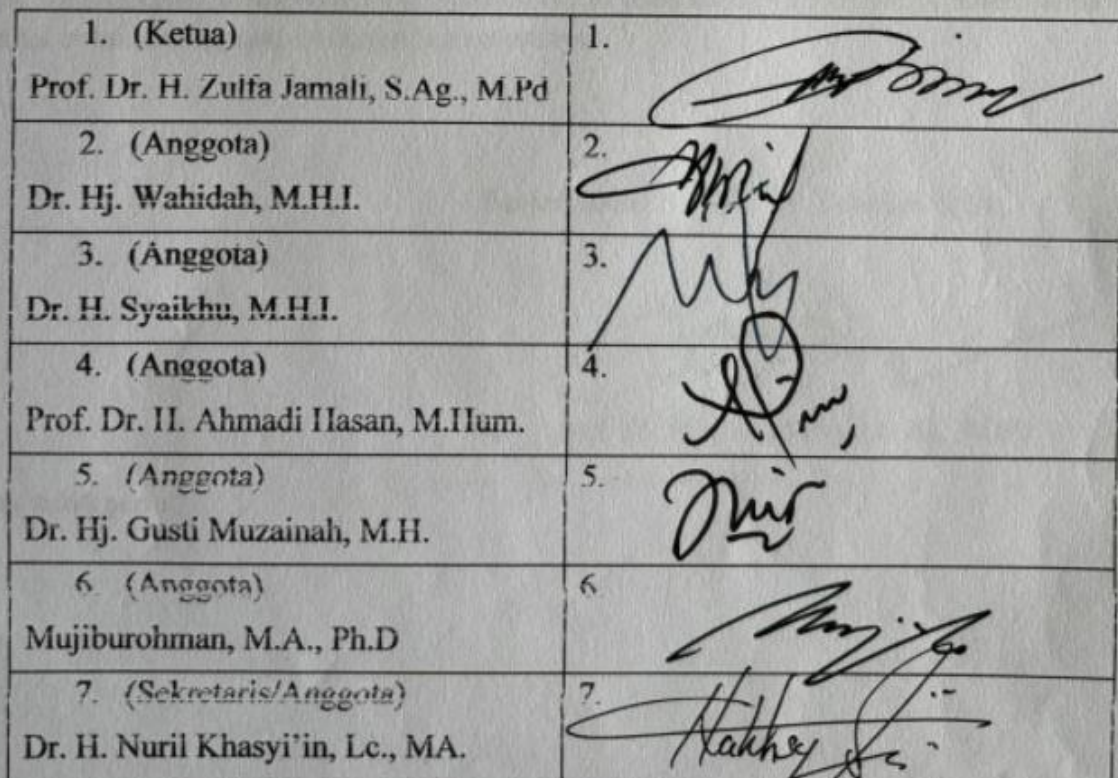 1. (Ketua)
Prof. Dr. H. Zulfa Jamali, S.Ag., M.Pd
1.
2. (Anggota)
Dr. Hj. Wahidah, M.H.I.
2.
3. (Anggota)
Dr. H. Syaikhu, M.H.I.
3.
4. (Anggota)
Prof. Dr. H. Ahmadi Hasan, M.Hum.
4.
5. (Anggota)
Dr. Hj. Gusti Muzainah, M.H.
5.
6. (Anggota)
Mujiburohman, M.A., Ph.D
6.
7. (Sekretaris/Anggota)
Dr. H. Nuril Khasyi'in, Lc., MA.
7.